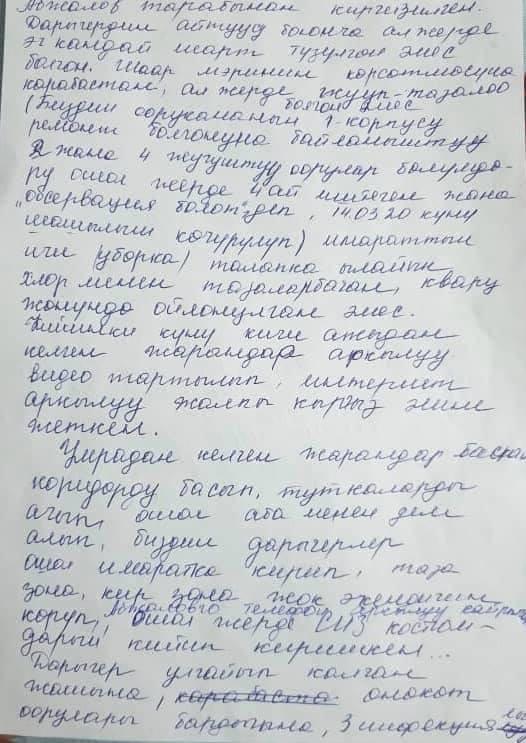 Абжалов тарабынан киргизилген.
Дарыгердин айтууу боюнча ал жерде
эч кандай шарт түзүлгөн эмес
болгон. Шаар мэринин көрсөтмөсүнө
карабастан, ал жерде жууп-тазалоо
болгон эмес
(Биздин оорукананын 1-корпусу
ремонт болгонуна байланыштуу
2 жана 4 жугуштуу оорулар бөлүмдө-
рү ошол жерде 4 ай иштеген жана
"обсервация болот" деп, 14.03.20 күнү
шашылыш көчүрүлүп) имараттын
ичи (уборка) талапка ылайык
хлор менен тазаларбаган, кварц
жөнүндө ойлонулган эмес.
Кийинки күнү кичи ажыдан
келген жарандар аркылуу
видео тартылып, интернет
аркылуу жалпы кыргыз элине
жеткен.
Умрадан келген жарандар баскан
коридорду басып, туткаларды
ачып, ошол аба менен дем
алып, биздин дарыгерлер
ошол имаратка кирип, таза
зона, кир зона жок экендигин
көрүп, Абжаловго телефон аркылуу кайрылып
ошол жерде СИЗ костюм-
дарын кийип киришкен...
Дарыгер улгайып калган
жашына, карабаста онокот
оорулары бардыгына, 3 инфекция